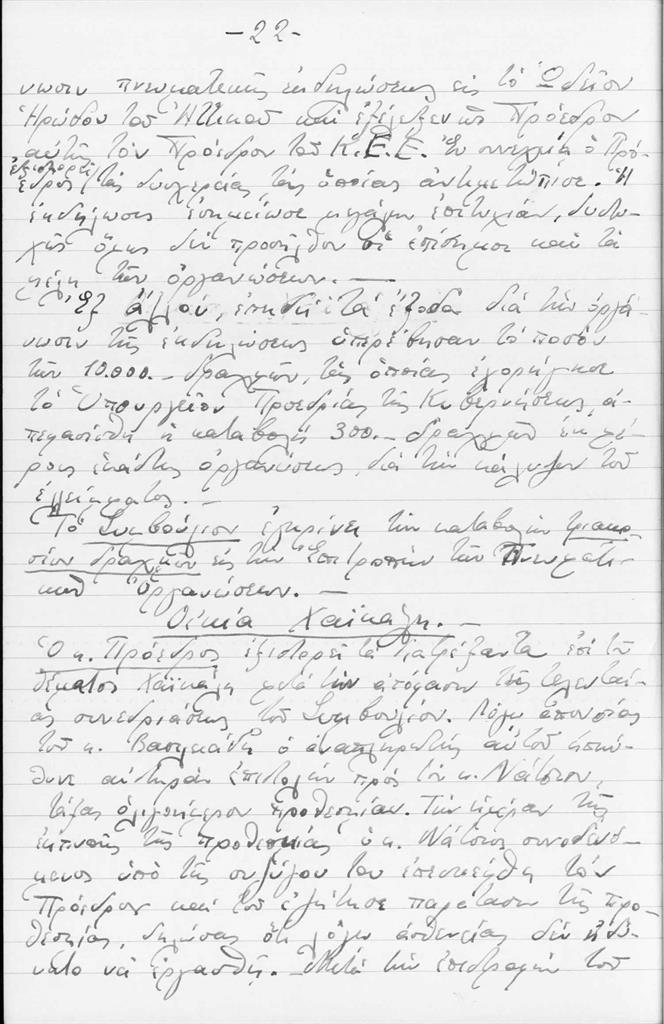 -22-
νωσιν πνευματικῆς ἐκδηλώσεως εἰς τὸ Ὠδεῖον
Ἡρώδου τοῦ Ἀττικοῦ καὶ ἐξέλεξεν ὡς Πρόεδρον
αὐτῆς τὸν Πρόεδρον τοῦ Κ.Ε.Ε. Ἐν συνεχείᾳ ὁ Πρό-
εδρος ἐξιστορεῖ τὰς δυσχερείας, τὰς ὁποίας ἀντιμετώπισε. Ἡ
ἐκδήλωσις ἐσημείωσε μεγάλην ἐπιτυχίαν, δυστυ-
χῶς ὅμως δὲν προσῆλθον οἱ ἐπίσημοι καὶ τὰ
μέλη τῶν ὀργανώσεων. —
Ἐξ ἄλλου, ἐπειδὴ τὰ ἔξοδα διὰ τὴν ὀργά-
νωσιν τῆς ἐκδηλώσεως ὑπερέβησαν τὸ ποσὸν
τῶν 10.000.- δραχμῶν, τὰς ὁποίας ἐχορήγησε
τὸ Ὑπουργεῖον Προεδρίας τῆς Κυβερνήσεως, ἀ-
πεφασίσθη ἡ καταβολὴ 300.- δραχμῶν ἐκ μέ-
ρους ἑκάστης ὀργανώσεως, διὰ τὴν κάλυψιν τοῦ
ἐλλείμματος. —
Τὸ Συμβούλιον ἐγκρίνει τὴν καταβολὴν τριακο-
σίων δραχμῶν εἰς τὴν Ἐπιτροπὴν τῶν Πνευματι-
κῶν Ὀργανώσεων. —
Οἰκία Χαϊκάλη. —
Ὁ κ. Πρόεδρος ἐξιστορεῖ τὰ διατρέξαντα ἐπὶ τοῦ
θέματος Χαϊκάλη μετὰ τὴν ἀπόφασιν τῆς τελευταί-
ας συνεδριάσεως τοῦ Συμβουλίου. Λόγῳ ἀπουσίας
τοῦ κ. Βασιλειάδη ὁ ἀναπληρωτὴς αὐτοῦ ἀπηύ-
θυνε αὐστηρὰν ἐπιστολὴν πρὸς τὸν κ. Νάτσιον,
τάξας ὀλιγοήμερον προθεσμίαν. Τὴν ἡμέραν τῆς
ἐκπνοῆς τῆς προθεσμίας ὁ κ. Νάτσιος συνοδευό-
μενος ὑπὸ τῆς συζύγου του ἐπεσκέφθη τὸν
Πρόεδρον καὶ τοῦ ἐζήτησε παράτασιν τῆς προ-
θεσμίας, δηλώσας ὅτι λόγῳ ἀσθενείας δὲν ἠδύ-
νατο νὰ ἐργασθῇ. Μετὰ τὴν ἐπιστροφὴν τοῦ